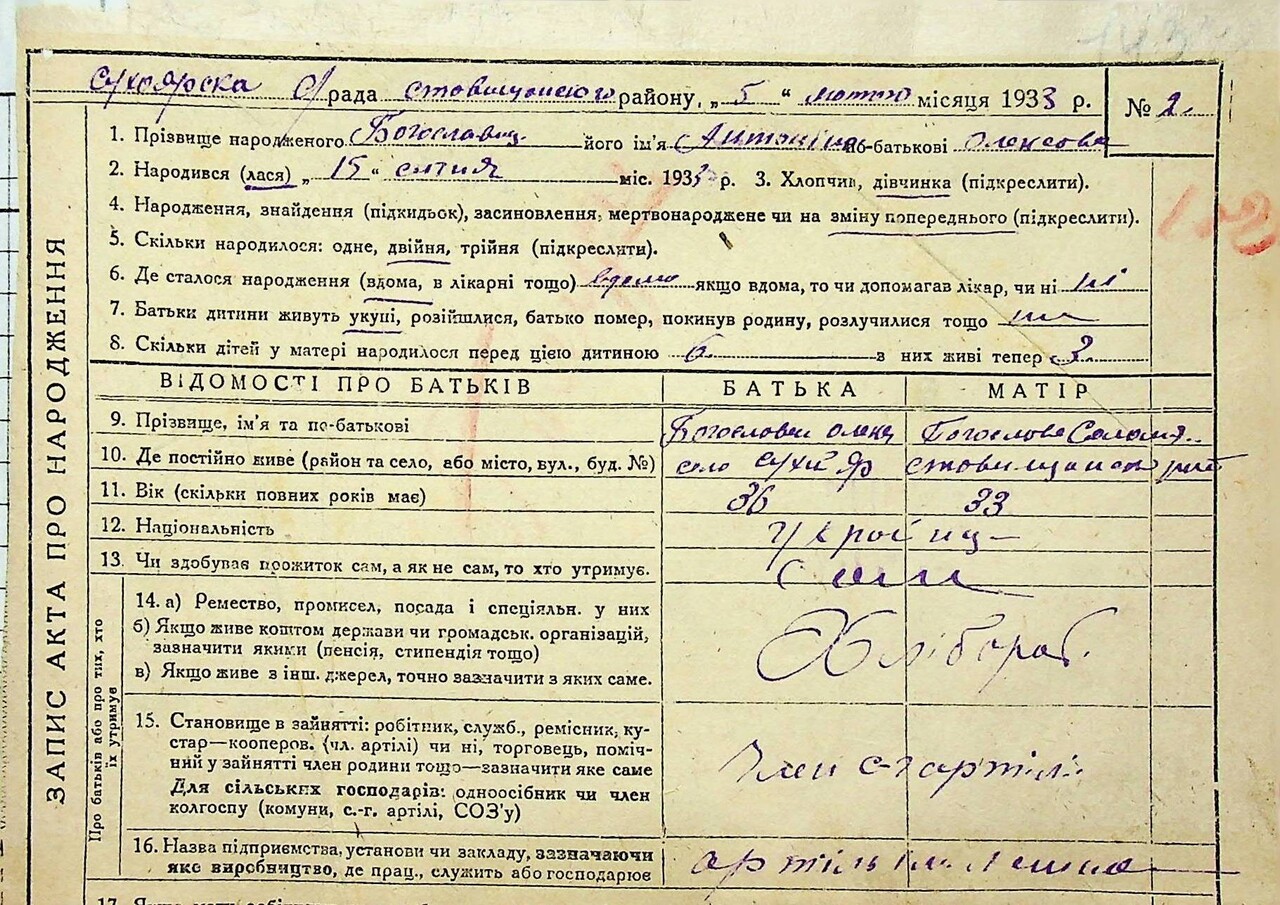 Сухоярска С/рада Ставищанского району, „ 5 “ лютого місяця 1933 р. № 2.
1. Прізвище народженого Богославец його ім'я Антоніна по-батькові Олексова
2. Народився (лася) „ 15 “ січня міс. 1933 р. 3. Хлопчик, дівчинка (підкреслити).
4. Народження, знайдення (підкидьок), засиновлення, мертвонароджене чи на зміну попереднього (підкреслити).
5. Скільки народилося: одне, двійня, трійня (підкреслити).
6. Де сталося народження (вдома, в лікарні тощо) вдома якщо вдома, то чи допомагав лікар, чи ні ні
7. Батьки дитини живуть укупі, розійшлися, батько помер, покинув родину, розлучилися тощо
8. Скільки дітей у матері народилося перед цією дитиною 6 з них живі тепер 3
ВІДОМОСТІ ПРО БАТЬКІВ БАТЬКА МАТІР
9. Прізвище, ім'я та по-батькові Богословец Олекс Богослове Солом.
10. Де постійно живе (район та село, або місто, вул., буд. №) село Сухий Яр Ставищанского рай
11. Вік (скільки повних років має) 36 33
12. Національність Україн
13. Чи здобуває прожиток сам, а як не сам, то хто утримує. Сами
14. а) Ремество, промисел, посада і спеціяльн. у них
б) Якщо живе коштом держави чи громадськ. організацій,
зазначити якими (пенсія, стипендія тощо) Хлібороб.
в) Якщо живе з інш. джерел, точно зазначити з яких саме.
15. Становище в зайнятті: робітник, служб., ремісник, ку-
стар—кооперов. (чл. артілі) чи ні, торговець, поміч-
ний у зайнятті член родини тощо—зазначити яке саме Член с-г артілі
Для сільських господарів: одноосібник чи член
колгоспу (комуни, с.-г. артілі, СОЗ'у)
16. Назва підприємства, установи чи закладу, зазначаючи
яке виробництво, де прац., служить або господарює артіль ім. Леніна
ЗАПИС АКТА ПРО НАРОДЖЕННЯ
Про батьків або про тих, хто
їх утримує